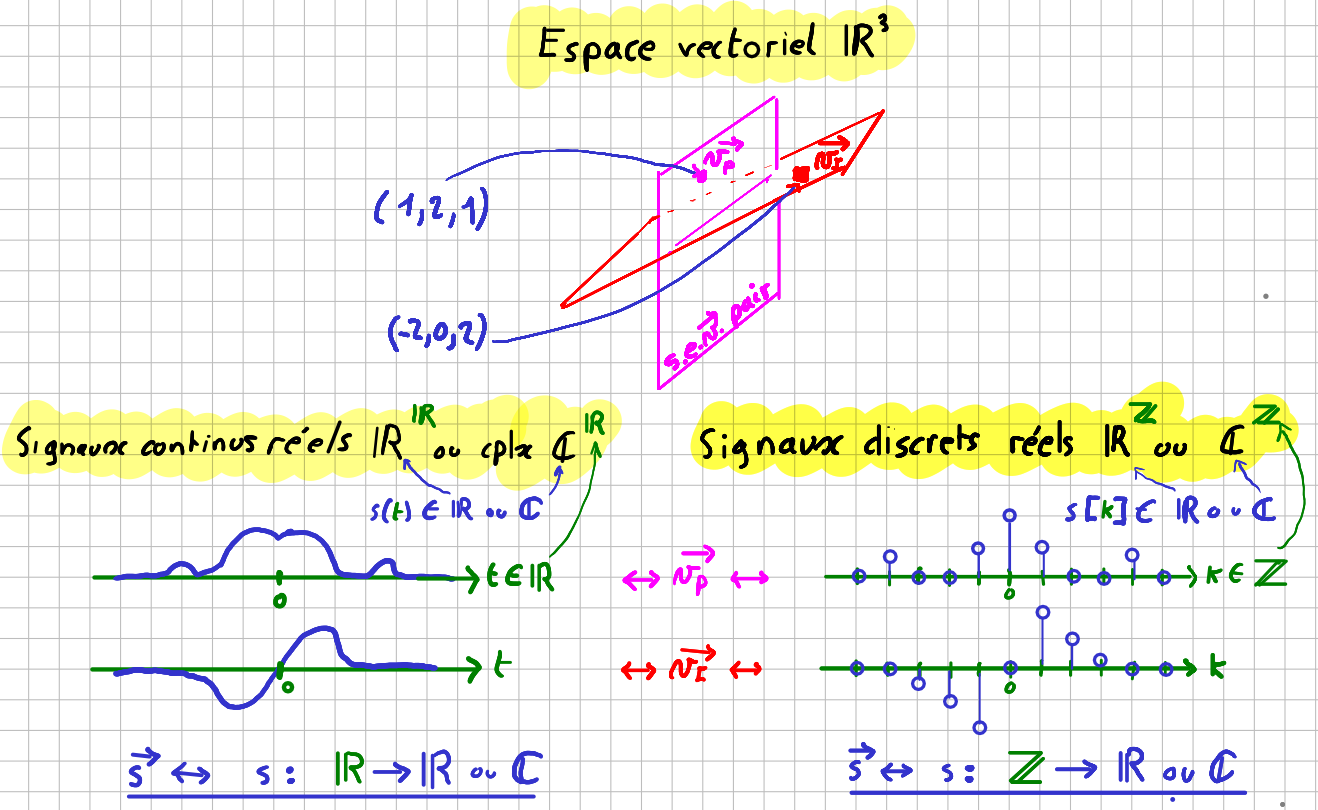 Espace vectoriel ℝ³
v⃗ₚ
v⃗ᵢ
(1,2,1)
(-2,0,2)
s.e.v⃗. pair
Signaux continus réels ℝ^ℝ ou cplx ℂ^ℝ
s(t) ∈ ℝ ou ℂ
t ∈ ℝ
0
t
0
↔ v⃗ₚ ↔
↔ v⃗_I ↔
s⃗ ↔ s : ℝ → ℝ ou ℂ
Signaux discrets réels ℝ^ℤ ou ℂ^ℤ
s[k] ∈ ℝ ou ℂ
k ∈ ℤ
0
k
0
s⃗ ↔ s : ℤ → ℝ ou ℂ